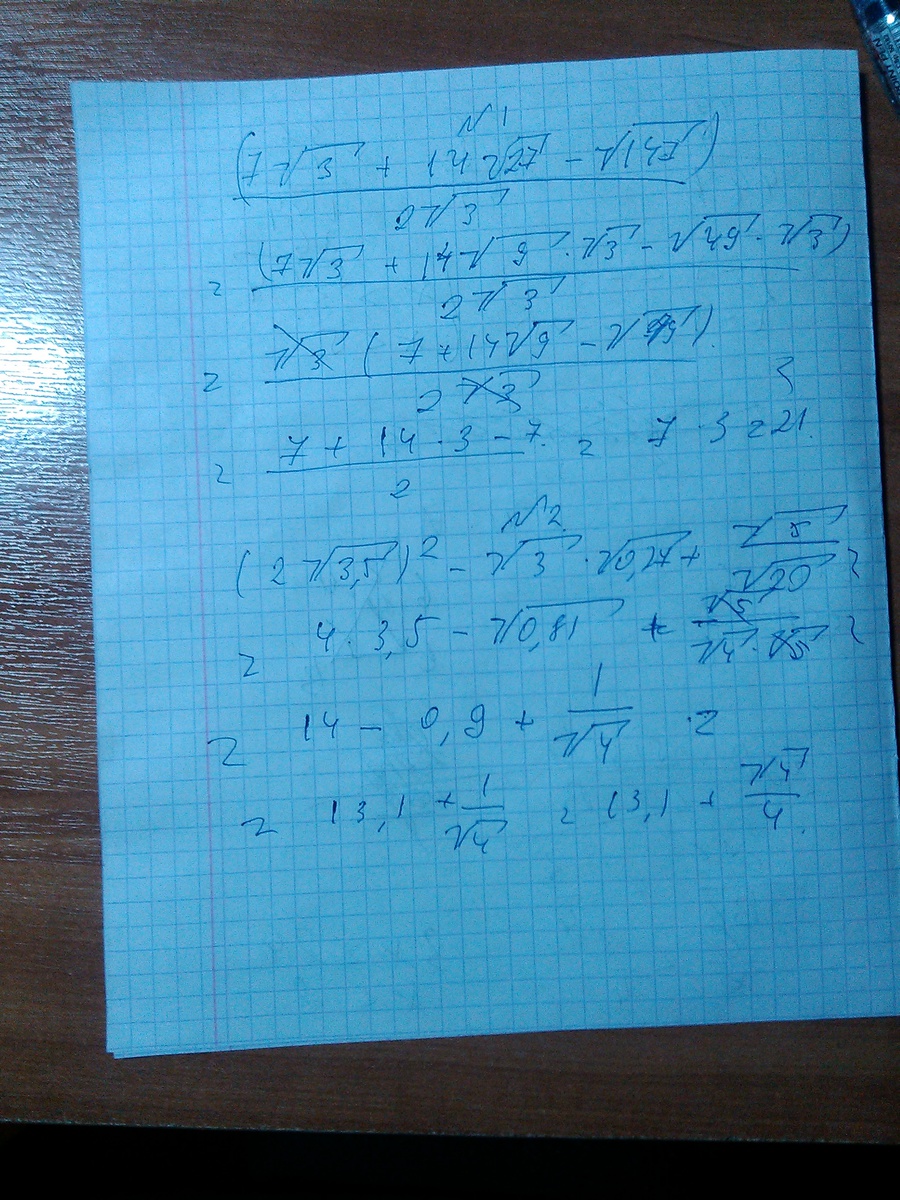 №1
(7√3 + 14√27 - √147)
2√3
= (7√3 + 14√9 · √3 - √49 · √3)
2√3
= √3 (7 + 14√9 - √49)
2√3
= 7 + 14 · 3 - 7 = 7 · 3 = 21
2
№2
(2√3,5)² - √3 · √0,27 + √5 =
√20
= 4 · 3,5 - √0,81 + √5 =
√4 · √5
= 14 - 0,9 + 1 =
√4
= 13,1 + 1 = 13,1 + √4
√4 4